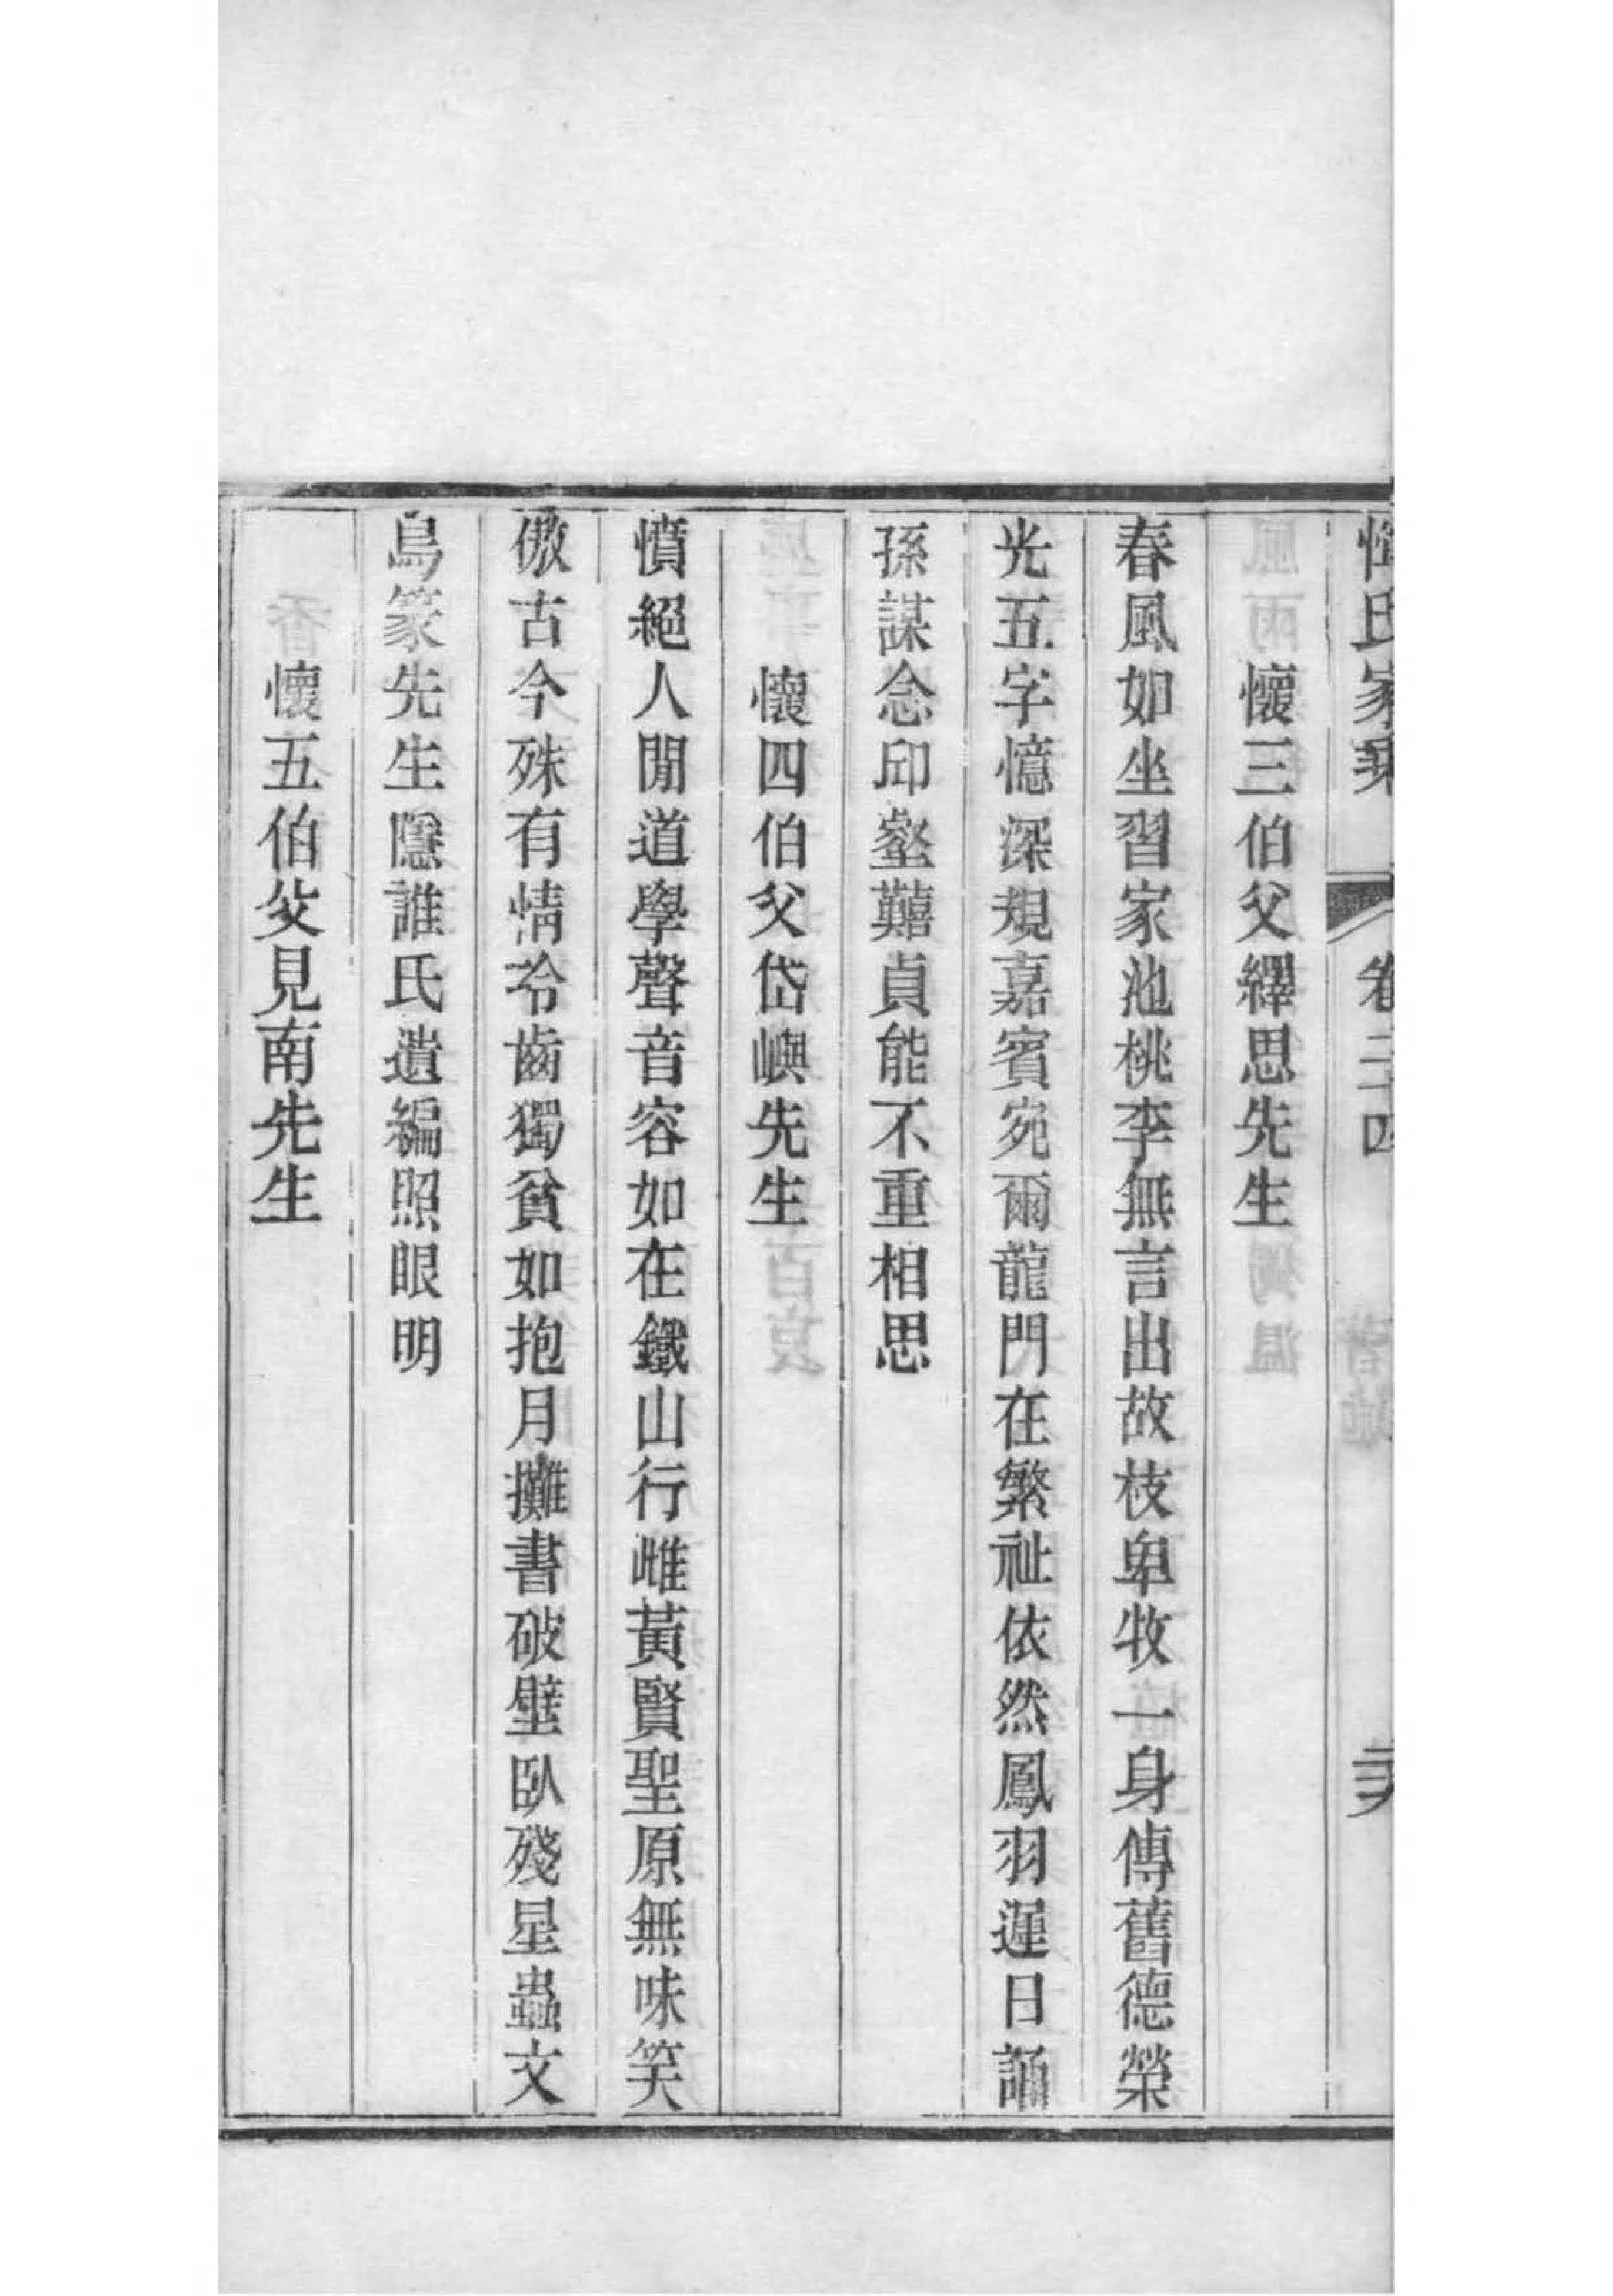 惲氏家乘 卷二十四
懷三伯父繹思先生
春風如坐習家池桃李無言出故枝卑牧一身傳舊德榮
光五字憶深規嘉賓宛爾龍門在繁祉依然鳳羽遲日誦
孫謀念邱壑艱貞能不重相思
懷四伯父岱嶼先生
憤絕人閒道學聲音容如在鐵山行雌黃賢聖原無味笑
傲古今殊有情冷齒獨貧如抱月攤書破壁臥殘星蟲文
鳥篆先生隱誰氏遺編照眼明
懷五伯父見南先生